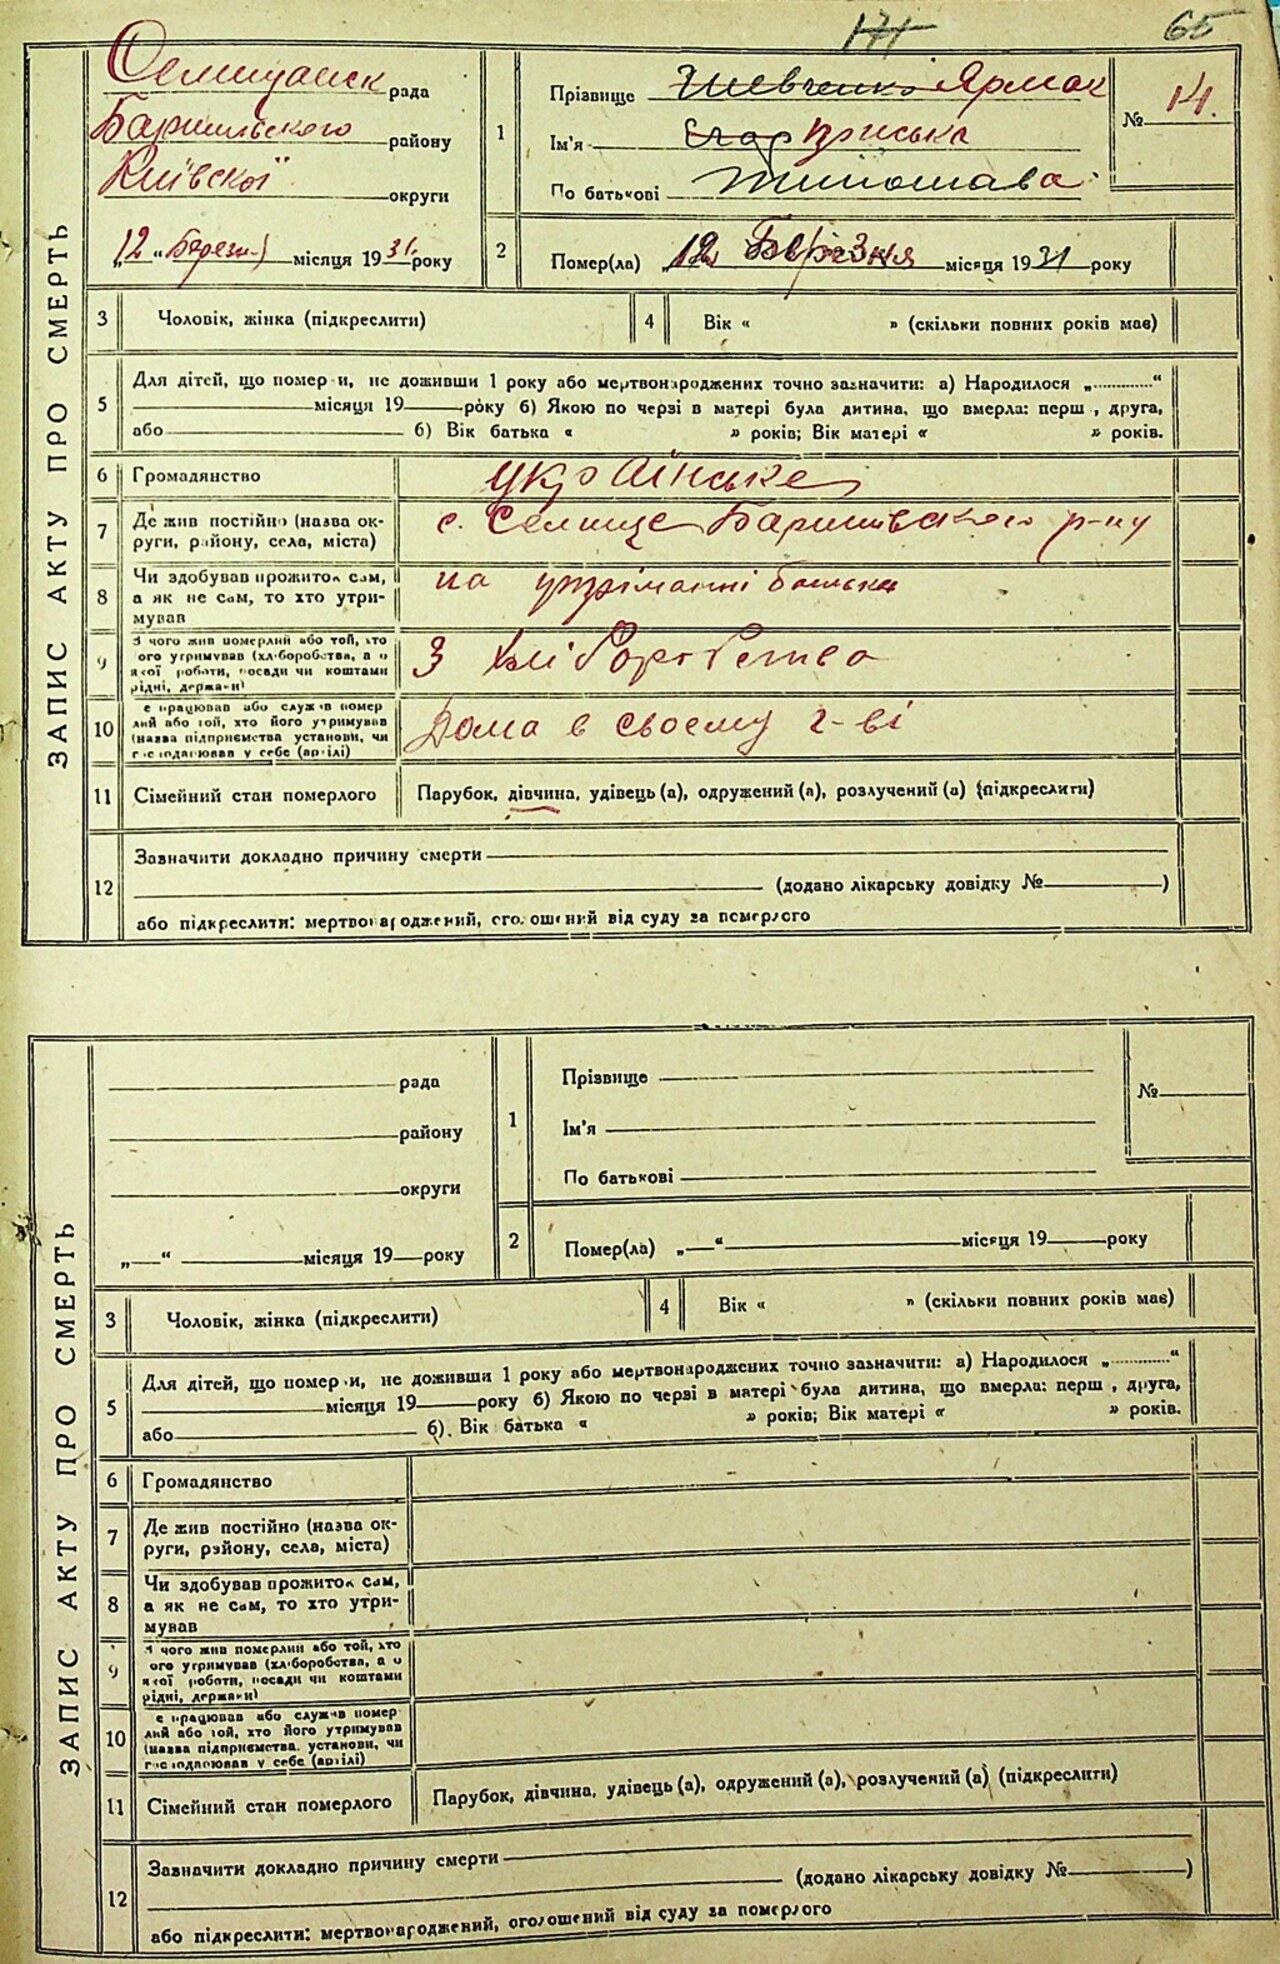 171 65
ЗАПИС АКТУ ПРО СМЕРТЬ
Селищанск рада
Баришівського району
Київскої округи
„12“ Березня місяця 1931 року
1
Прізвище Шевченко Ярмак
Ім'я Егор Пріська
По батькові Тимошава
№ 14.
2
Помер(ла) „12 Березня місяця 1931 року
3 Чоловік, жінка (підкреслити)
4 Вік « » (скільки повних років має)
5 Для дітей, що помер и, не доживши 1 року або мертвонароджених точно зазначити: а) Народилося „ “
місяця 19 року б) Якою по черзі в матері була дитина, що вмерла: перш , друга,
або б) Вік батька « » років; Вік матері « » років.
6 Громадянство українське
7 Де жив постійно (назва ок- с. Селище Баришівського р-ну
руги, району, села, міста)
8 Чи здобував прожиток сам, на утріманні батька
а як не сам, то хто утри-
мував
9 З чого жив померлий або той, хто З хліборобства
ого утримував (хліборобства, а о
якої роботи, посади чи коштами
рідні, держави)
10 е працював або служив помер Дома в своему г-ві
лий або той, хто його утримував
(назва підприємства установи, чи
господарював у себе (арілі)
11 Сімейний стан померлого Парубок, дівчина, удівець (а), одружений (а), розлучений (а) (підкреслити)
12 Зазначити докладно причину смерти
(додано лікарську довідку № )
або підкреслити: мертвонароджений, оголошений від суду за померлого
ЗАПИС АКТУ ПРО СМЕРТЬ
рада
району
округи
„ “ місяця 19 року
1
Прізвище
Ім'я
По батькові
№
2
Помер(ла) „ “ місяця 19 року
3 Чоловік, жінка (підкреслити)
4 Вік « » (скільки повних років має)
5 Для дітей, що помер и, не доживши 1 року або мертвонароджених точно зазначити: а) Народилося „ “
місяця 19 року б) Якою по черзі в матері була дитина, що вмерла: перш , друга,
або б). Вік батька « » років; Вік матері « » років.
6 Громадянство
7 Де жив постійно (назва ок-
руги, району, села, міста)
8 Чи здобував прожиток сам,
а як не сам, то хто утри-
мував
9 З чого жив померлий або той, хто
ого утримував (хліборобства, а о
якої роботи, посади чи коштами
рідні, держави)
10 е працював або служив помер
лий або той, хто його утримував
(назва підприємства. установи, чи
господарював у себе (арілі)
11 Сімейний стан померлого Парубок, дівчина, удівець (а), одружений (а), розлучений (а) (підкреслити)
12 Зазначити докладно причину смерти
(додано лікарську довідку № )
або підкреслити: мертвонароджений, оголошений від суду за померлого